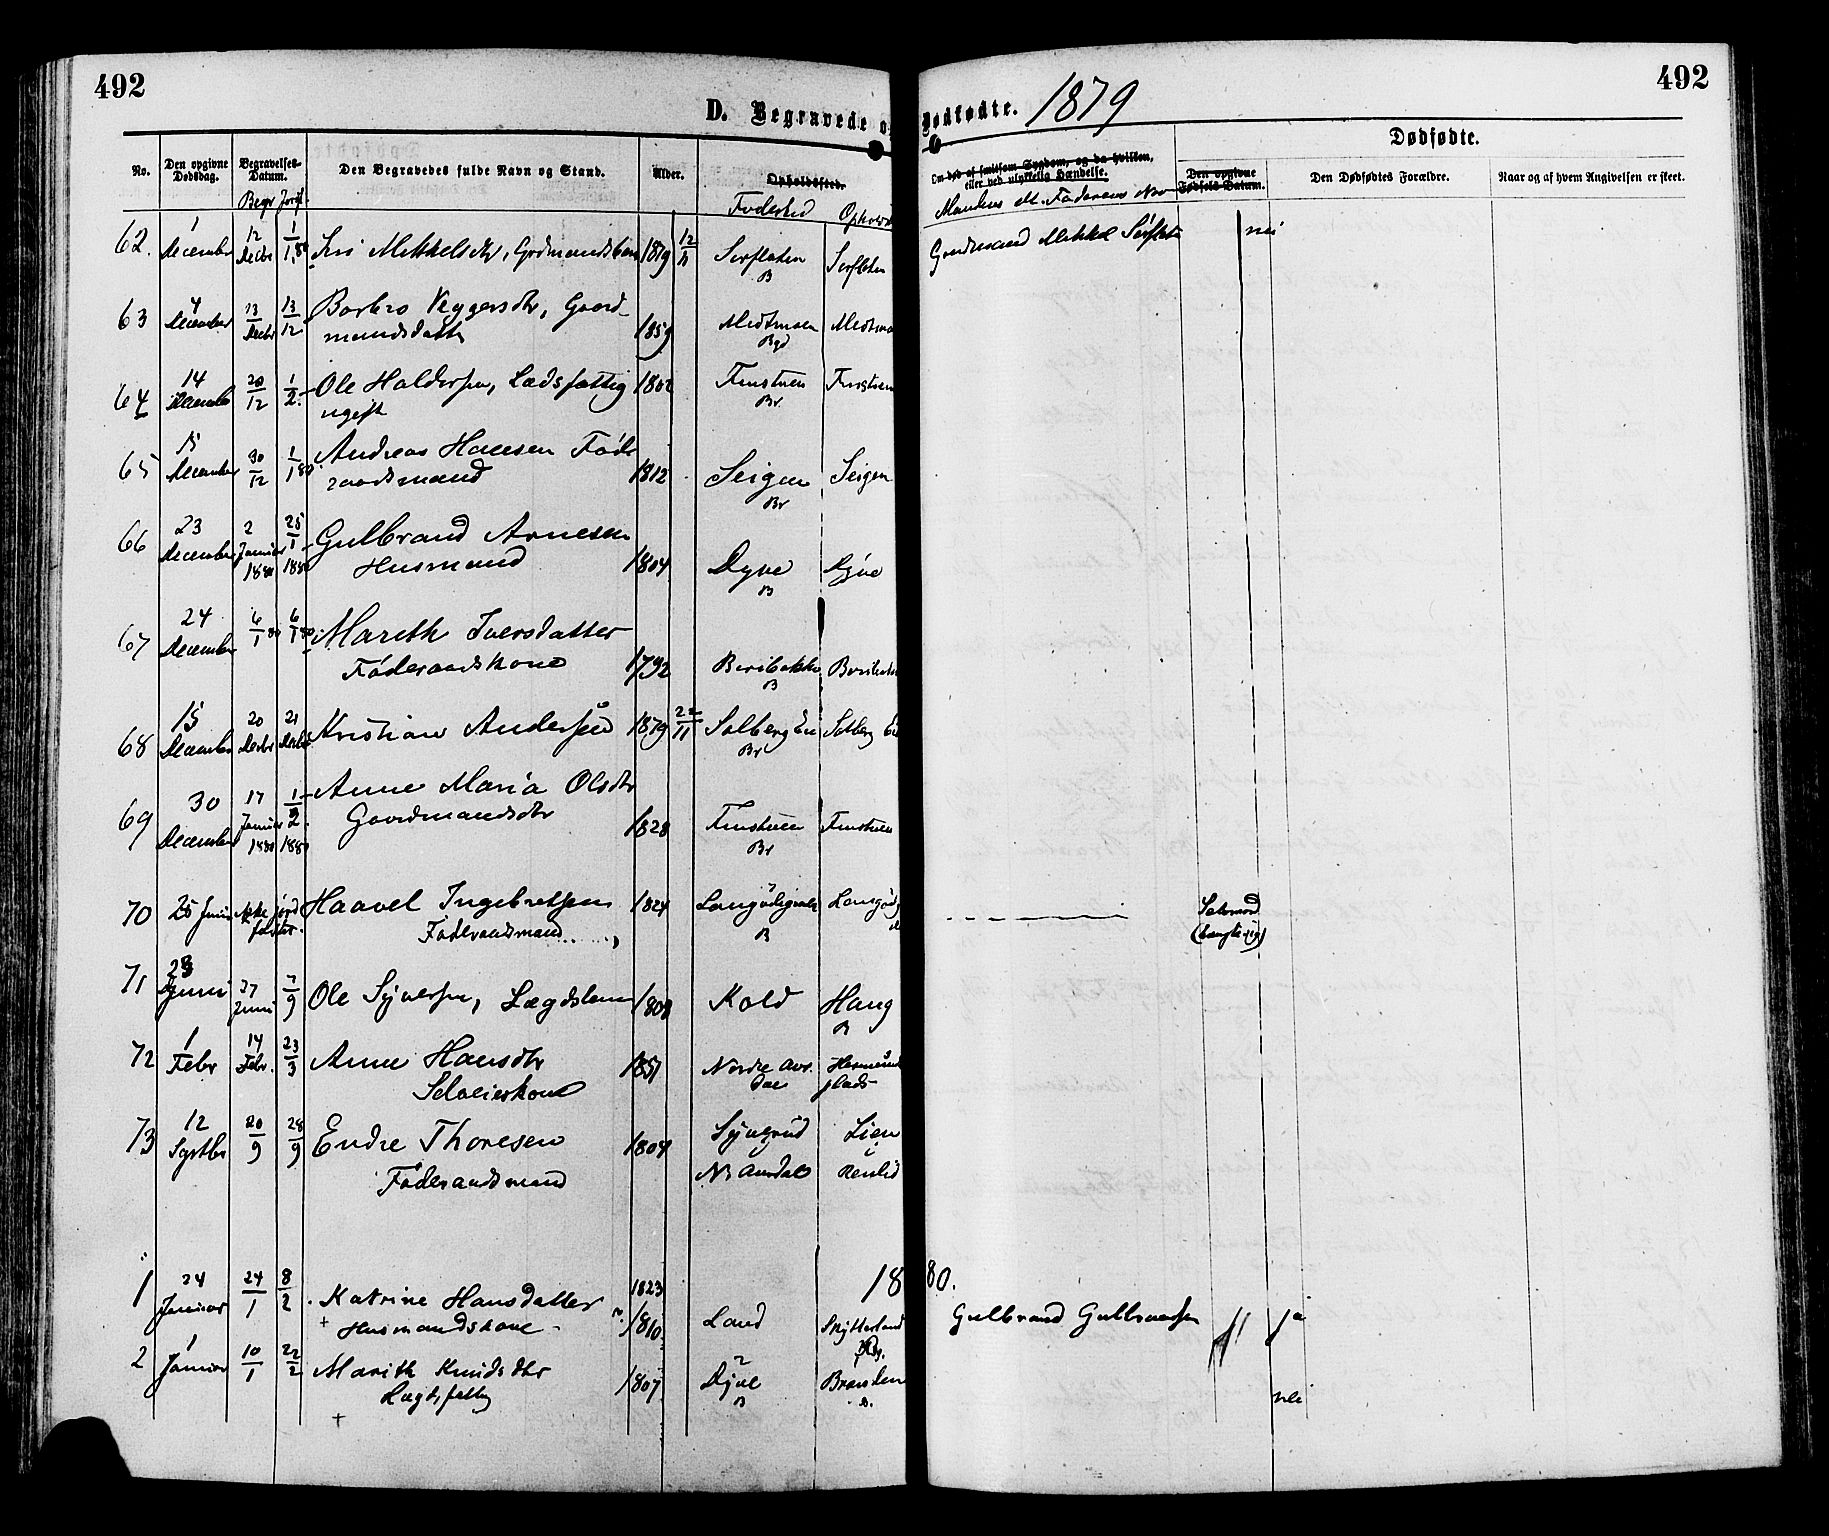 492
492
D. Begravede o
Dødfødte. 1879
No.
Den opgivne Dødsdag.
Begravelses-Datum.
Begr Jordf.
Den Begravedes fulde Navn og Stand.
Alder.
Opholdssted.
Fødested Ophold
Om død af smitsom Sygdom, og da hvilken, eller ved ulykkelig Hændelse.
Mandens ell. Faderens Navn
Dødfødte.
Den opgivne Fødsels-Datum.
Den Dødfødtes Forældre.
Naar og af hvem Angivelsen er skeet.
62. 1 December 12 Decbr 1/1 80 Mikkelsdtr, Grdmandsbarn 1879 12/11 Sørflaten B Sørflaten Gaardmand Mikkel Sørflaten nei
63 4 December 13 Decbr 13/12 Barbro Veggersdtr, Gaard
mandsdatter 1859 Medtmoen Bgd Medtmo
64 14 December 20/12 1/2 Ole Haldorsen, Lædsfattig 1802 Fønstuen Br Fønstuen
ugift
65 15 December 30/12 1/1 80 Andreas Hansen Føde
raadsmand 1812 Seigen Br Seigen
66 23 December 2 Januar 1880 25/1 1880 Gulbrand Arnesen
Husmand 1804 Dyve B Dyve
67 24 December 6/1 80 6/1 80 Marith Iversdatter
Føderaadskone 1792 Beribakke B
68 15 December 20 Decbr 21 Decbr Kristian Andersen 1879 22/11 Solberg Ei Br Solberg Ei
69 30 December 17 Januar 1880 1/2 1880 Anne Maria Olsdtr
Gaardmandsdtr 1828 Fønstuen Br Fønstuen
70 25 Juni ikke jord
fæstet. Haavel Ingebretsen 1824 B
Føderaadsmand Selvmord
71 23 Juni 27 Juni 7/9 Ole Syversen, Lægdslem 1808 Kold Haug B
72 1 Febr 14 Febr. 23/3 Anne Hansdtr 1851 Nordre Aur
dal plads
Selveierkone
73 12 Septbr 20/9 28/9 Endre Thoresen 1804 Syverud Lien
Føderaadsmand N. Aurdal Renlid
1880.
1 24 Januar 24/1 8/2 Katrine Hansdatter 1823
Husmandskone ? 1810 Land Skytterland Gulbrand Gulbrandsen ja
2 1 Januar 10/1 22/2 Marith Knudsdtr 1807 Dyve B nei
Lægdsfattig